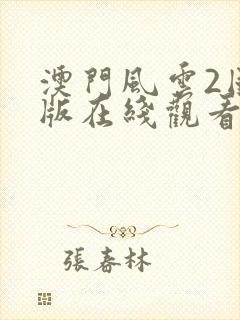 澳門風雲2
版在綫觀看
張春林